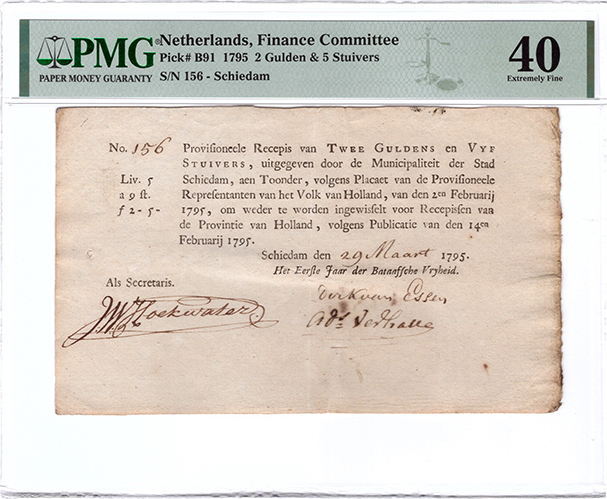 PMG
PAPER MONEY GUARANTY
Netherlands, Finance Committee
Pick# B91 1795 2 Gulden & 5 Stuivers
S/N 156 - Schiedam
40
Extremely Fine
No. 156
Liv. 5
a 9 st.
f 2-5-
Provisioneele Recepis van TWEE GULDENS en VYF
STUIVERS, uitgegeven door de Municipaliteit der Stad
Schiedam, aen Toonder, volgens Placaet van de Provisioneele
Representanten van het Volk van Holland, van den 2en Februarij
1795, om weder te worden ingewisselt voor Recepissen van
de Provintie van Holland, volgens Publicatie van den 14en
Februarij 1795.
Schiedam den 29 Maart 1795.
Het Eerste Jaar der Bataafsche Vryheid.
Als Secretaris.
Hoekwater
Dirk van Essen